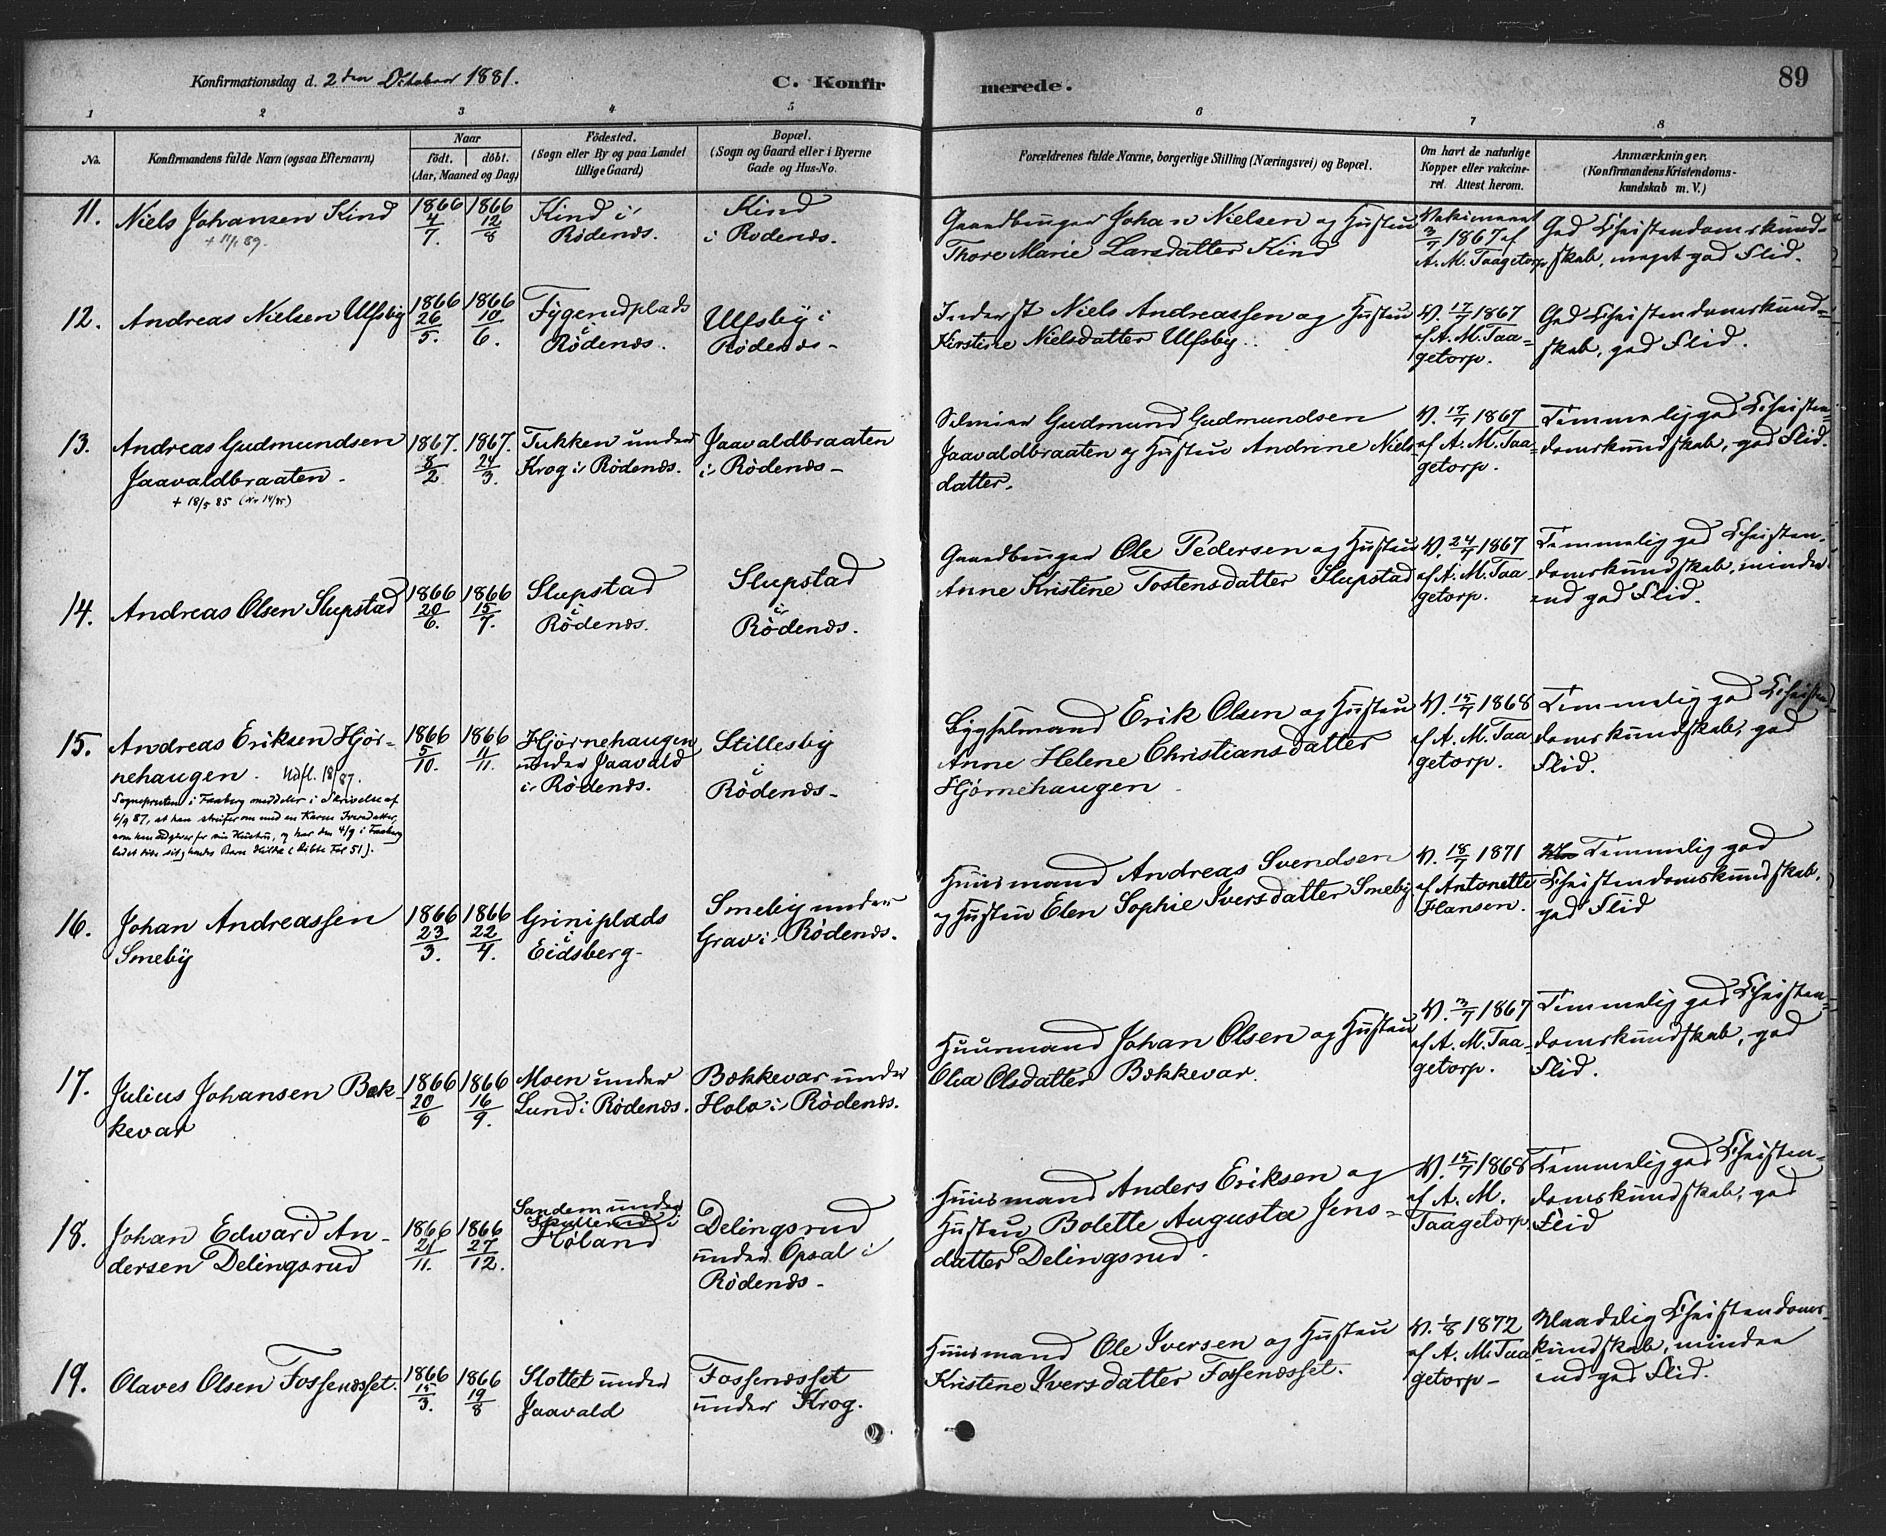 Konfirmationsdag d. 2den Oktober 1881.
C. Konfirmerede.
89
1 2 3 4 5 6 7 8
No.
Konfirmandens fulde Navn (ogsaa Efternavn)
Naar
født. døbt.
(Aar, Maaned og Dag)
Fødested.
(Sogn eller By og paa Landet
tillige Gaard)
Bopæl.
(Sogn og Gaard eller i Byerne
Gade og Hus-No.
Forældrenes fulde Navne, borgerlige Stilling (Næringsvei) og Bopæl.
Om havt de naturlige
Kopper eller vakcine-
ret. Attest herom.
Anmærkninger.
(Konfirmandens Kristendoms-
kundskab m. V.)
11.
Niels Johansen Kind
+ 11/1 89.
1866
4/7.
1866
12/8
Kind i
Rødenæs.
Kind
i Rødenæs.
Gaardbruger Johan Nielsen og Hustru
Thore Marie Larsdatter Kind
Vakcineret
3/7 1867 af
A. M. Taagetorp
God Christendomskund-
skab, meget god Flid.
12.
Andreas Nielsen Ulfsby
1866
26/5.
1866
10/6.
Tygerudplads
i
Rødenæs.
Ulfsby i
Rødenæs-
Inderst Niels Andreassen og Hustru
Kirstine Nielsdatter Ulfsby.
V. 17/7 1867
af A. M. Taa-
getorp.
God Christendomskund-
skab, god Flid.
13.
Andreas Gudmundsen
Jaavaldbraaten.
+ 18/5 85 (No 14/85)
1867.
8/2
1867.
24/3.
Tukken under
Krog i Rødenæs.
Jaavaldbraaten
i Rødenæs-
Selveier Gudmund Gudmundsen
Jaavaldbraaten og Hustru Andrine Niels-
datter.
V. 17/7 1867
af A. M. Taa-
getorp.
Temmelig god Christen-
domskundskab, god Flid.
14.
Andreas Olsen Slupstad
1866
20/6.
1866
15/7.
Slupstad
i
Rødenæs.
Slupstad
i
Rødenæs.
Gaardbruger Ole Pedersen og Hustru
Anne Kristine Tostensdatter Slupstad
V. 24/7 1867
af A. M. Taa-
getorp.
Temmelig god Christen-
domskundskab, mindre
end god Flid.
15.
Andreas Eriksen Hjør-
nehaugen. Udfl. 18/ 87.
Sognepresten i Faaberg meddeler i Skrivelse af
6/9 87, at han streifer om med en Karen Iversdatter,
som han udgiver for sin Hustru, og har den 4/9 i Faaberg
ladet døbe sit og hendes Barn Hilda (Døbte Fol 51).
1866
5/10.
1866
11/11.
Hjørnehaugen
under Jaavald
i Rødenæs.
Stillesby
i
Rødenæs-
Bygselmand Erik Olsen og Hustru
Anne Helene Christiansdatter
Hjørnehaugen
V. 15/7 1868
af A. M. Taa
getorp.
Temmelig god Christen
domskundskab, god
Flid.
16.
Johan Andreassen
Smeby
1866
23/3.
1866
22/4.
Griniplads
i
Eidsberg-
Smeby under
Grav i Rødenæs.
Huusmand Andreas Svendsen
og Hustru Elen Sophie Iversdatter Smeby
V. 18/7 1871
af Antonette
Hansen.
Temmelig god
Christendomskundskab,
god Flid
17.
Julius Johansen Bæk-
kevar
1866
20/6
1866
16/9.
Moen under
Lund i Rødenæs.
Bækkevar under
Holo i Rødenæs.
Huusmand Johan Olsen og Hustru
Olia Olsdatter Bækkevar.
V. 3/7 1867
af A. M. Taa-
getorp.
Temmelig god Christen-
domskundskab, god
Flid.
18.
Johan Edward An-
dersen Delingsrud
1866
21/11.
1866
27/12.
Sandem under
i
Høland
Delingsrud
under Opsal i
Rødenæs-
Huusmand Anders Eriksen og
Hustru Bolette Augusta Jens-
datter Delingsrud.
V. 15/7 1868
af A. M.
Taagetorp
Temmelig god Christen-
domskundskab, god
Flid
19.
Olaves Olsen Fossenæsset.
1866
15/3.
1866
19/8
Slottet under
Jaavald
Fossenæsset
under Krog.
Huusmand Ole Iversen og Hustru
Kristine Iversdatter Fossenæsset.
V. 1/8 1872
af A. M. Taa
getorp-
Maadelig Christendoms-
kundskab, mindre
end god Flid.